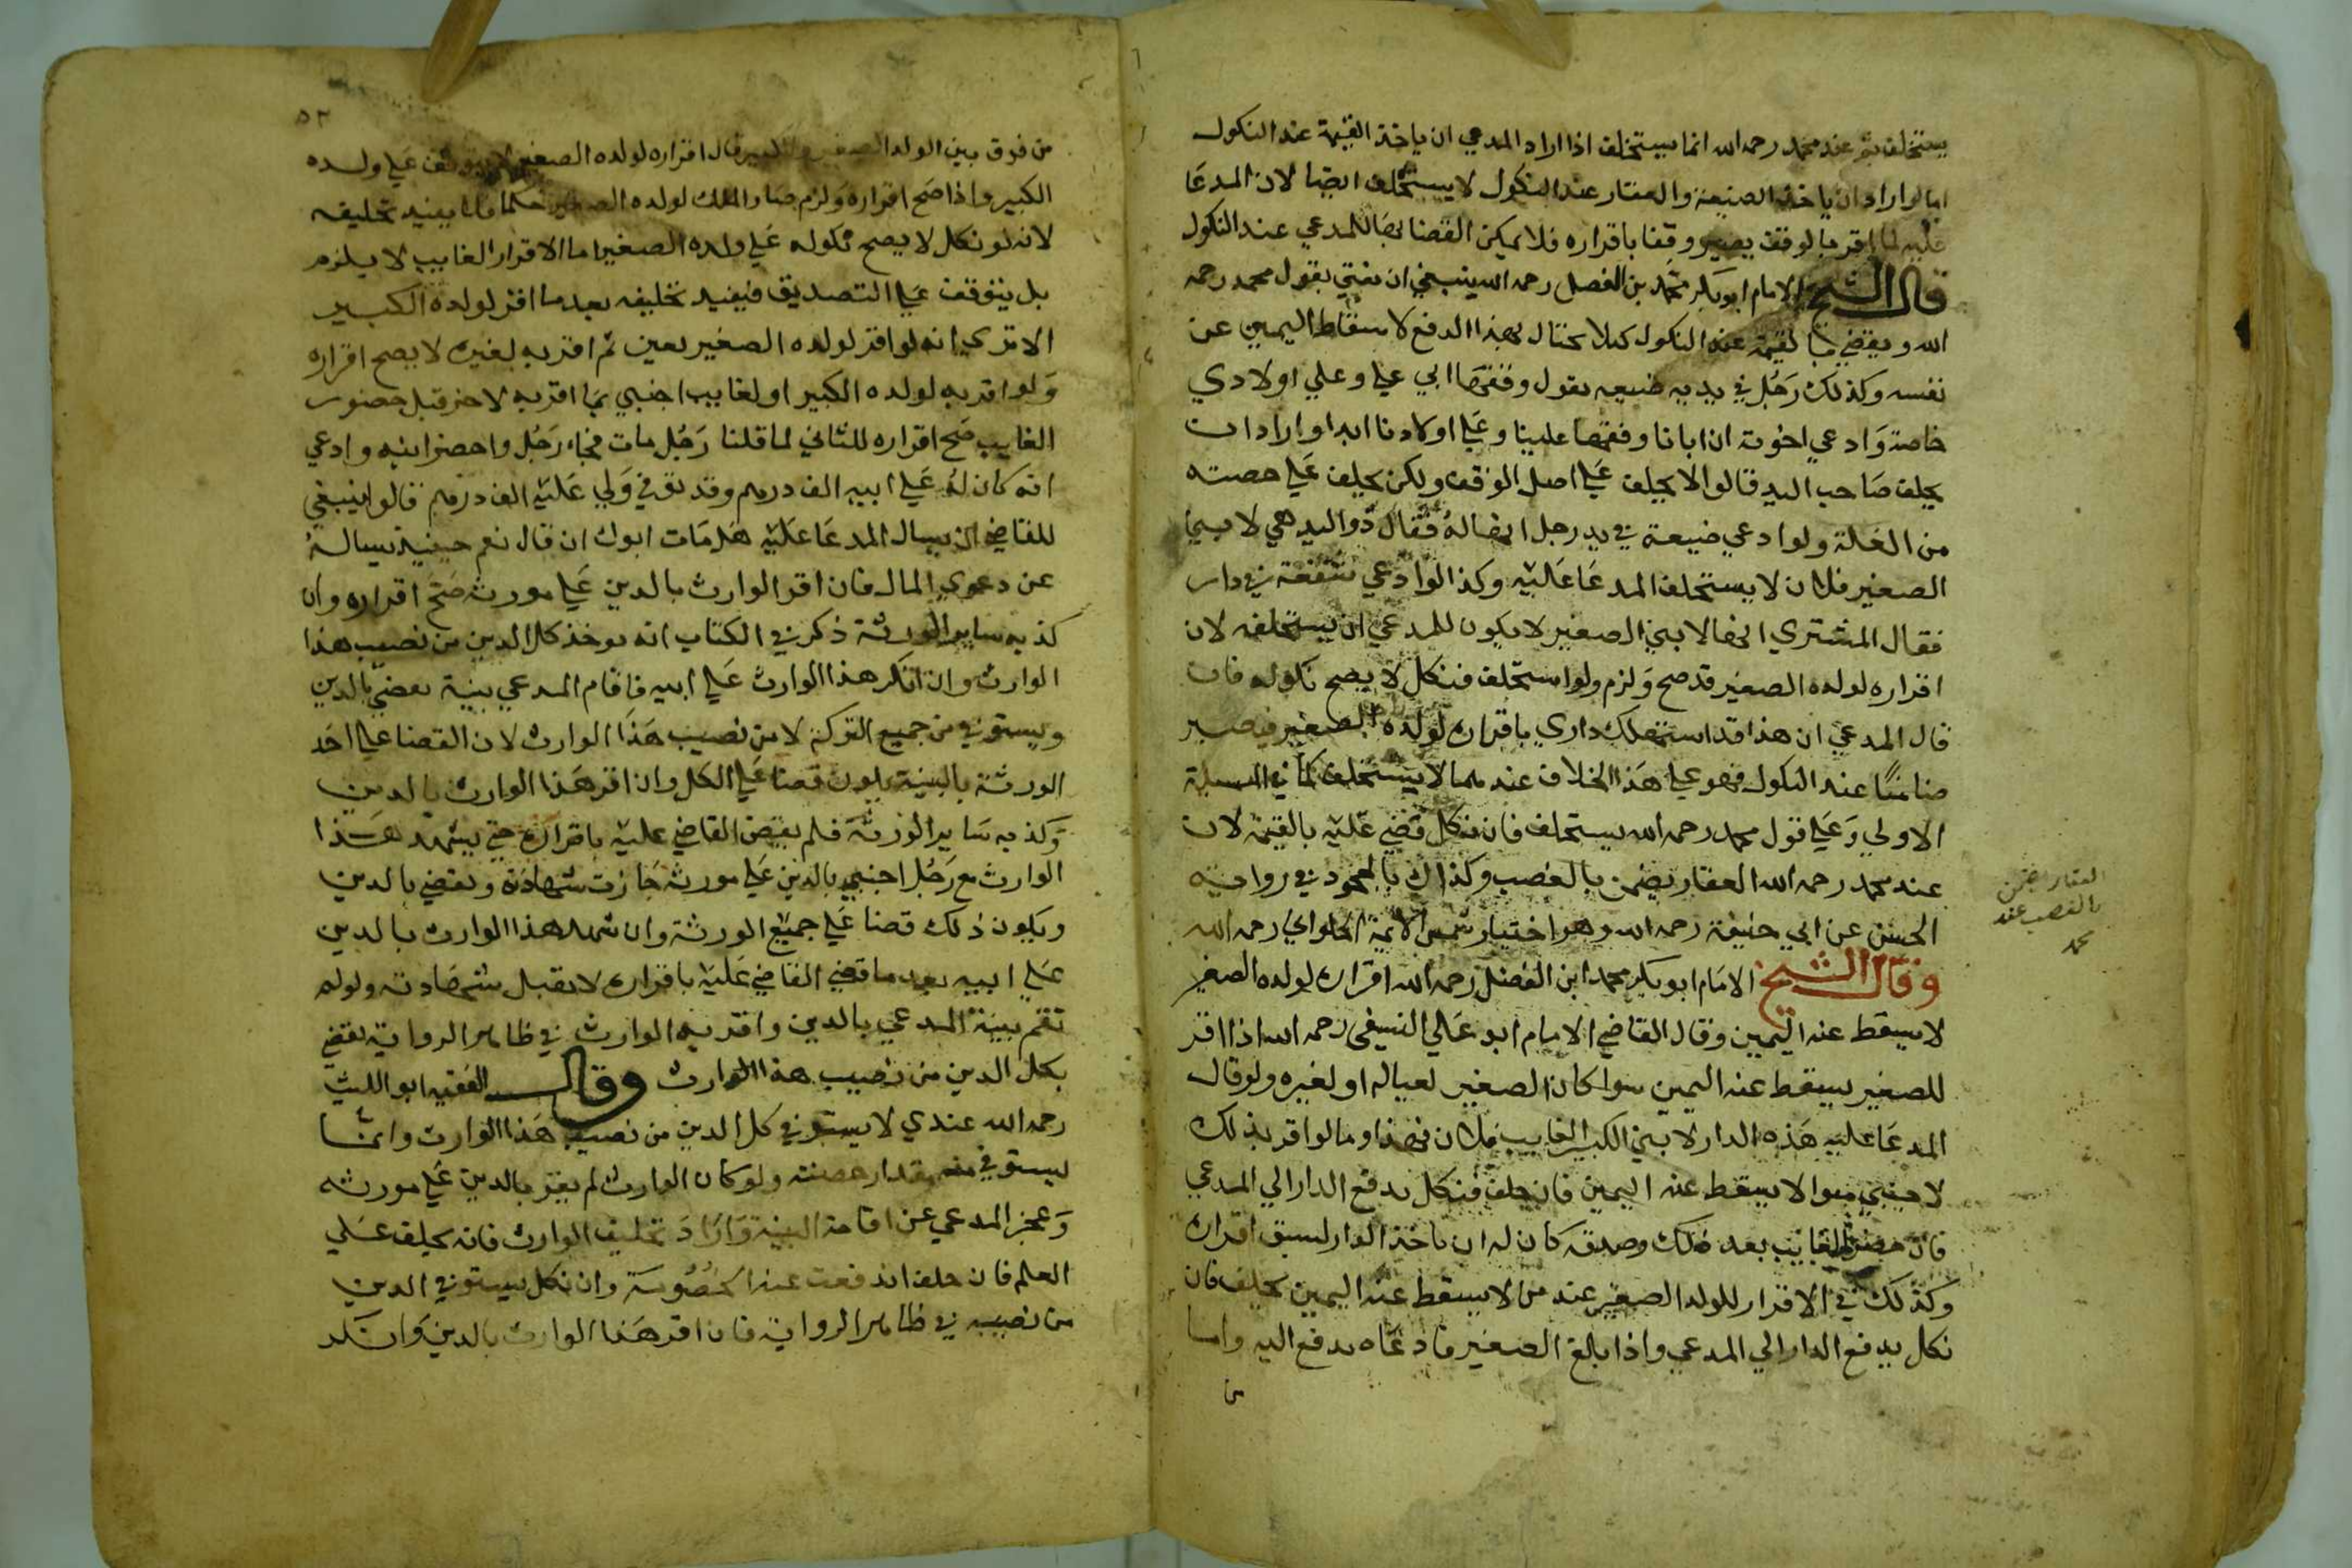 يستخلف ثم عند محمد رحمه الله انما يستخلف اذا اراد المدعي ان ياخذ القيمة عند النكول
اما لو اراد ان ياخذ الضيعة والعقار عند النكول لا يستحلف ايضا لان المدعا
عليه لما اقر بالوقف يصير وقفا باقراره فلا يمكن القضا بها للمدعي عند النكول
قال الشيخ الامام ابو بكر محمد بن الفضل رحمه الله ينبغي ان يفتي بقول محمد رحمه
الله ويقضي بالقيمة عند النكول كيلا يحتال بهذا الدفع لاسقاط اليمين عن
نفسه وكذلك رجل في يديه ضيعه يقول وقفها ابي علي وعلي اولادي
خاصة وادعي اخوته ان ابانا وقفها علينا وعلي اولادنا ابدا واراد ان
يحلف صاحب اليد قالوا لا يحلف علي اصل الوقف ولكن يحلف علي حصته
من الغلة ولو ادعي ضيعة في يد رجل انها له فقال ذو اليد هي لابني
الصغير فلان لا يستحلف المدعا عليه وكذا لو ادعي شفعة في دار
فقال المشتري انها لابني الصغير لا يكون للمدعي ان يستحلفه لان
اقراره لولده الصغير قد صح ولزم ولو استحلف فنكل لا يصح نكوله فان
قال المدعي ان هذا قد استهلك داري باقراره لولده الصغير فيصير
ضامنا عند النكول فهو علي هذا الخلاف عندهما لا يستحلف كما في المسيلة
الاولي وعلي قول محمد رحمه الله يستحلف فان نكل قضي عليه بالقيمة لان
عند محمد رحمه الله العقار يضمن بالغصب وكذلك بالجحود في رواية
الحسن عن ابي حنيفة رحمه الله وهو اختيار شمس الائمة الحلواي رحمه الله
وقال الشيخ الامام ابو بكر محمد ابن الفضل رحمه الله اقراره لولده الصغير
لا يسقط عنه اليمين وقال القاضي الامام ابو علي النسفي رحمه الله اذا اقر
للصغير يسقط عنه اليمين سوا كان الصغير لعياله او لغيره ولو قال
المدعا عليه هذه الدار لابني الكبير الغايب فلان فهذا وما لو اقر بذلك
لاجنبي سوا لا يسقط عنه اليمين فان حلف فنكل يدفع الدار الي المدعي
فان حضر الغايب بعد ذلك وصدقه كان له ان ياخذ الدار لسبق اقراره
وكذلك في الاقرار للولد الصغير عند من لا يسقط عنه اليمين يحلف فان
نكل يدفع الدار الي المدعي واذا بلغ الصغير فادعاه يدفع اليه واما
من
العقار يضمن
بالغصب عند
محمد
٥٢
من فرق بين الولد الصغير والكبير قال اقراره لولده الصغير لا يتوقف علي ولده
الكبير واذا صح اقراره ولزم صار الملك لولده الصغير حكما فلا يفيد تحليفه
لانه لو نكل لا يصح نكوله علي ولده الصغير اما الاقرار الغايب لا يلزم
بل يتوقف علي التصديق فيفيد تحليفه بعد ما اقر لولده الكبير
الا تري انه لو اقر لولده الصغير بعين ثم اقر به لغيره لا يصح اقراره
ولو اقر به لولده الكبير او لغايب اجنبي بما اقر به لاخر قبل حضور
الغايب صح اقراره للثاني لما قلنا رجل مات فجاء رجل واحضر ابنه وادعي
انه كان له علي ابيه الف درهم وقد توفي ولي عليه الف درهم قالوا ينبغي
للقاضي ان يسال المدعا عليه هل مات ابوك ان قال نعم حينيذ يساله
عن دعوي المال فان اقر الوارث بالدين علي مورثه صح اقراره وان
كذبه ساير الورثة ذكر في الكتاب انه يوخذ كل الدين من نصيب هذا
الوارث وان انكر هذا الوارث علي ابيه فاقام المدعي بينة يقضي بالدين
ويستوفي من جميع التركة لا من نصيب هذا الوارث لان القضا علي احد
الورثة بالبينة يكون قضا علي الكل وان اقر هذا الوارث بالدين
وكذبه ساير الورثة فلم يقض القاضي عليه باقراره حتي يشهد هذا
الوارث مع رجل اجنبي بالدين علي مورثه جازت شهادته ويقضي بالدين
ويكون ذلك قضا علي جميع الورثة وان شهد هذا الوارث بالدين
علي ابيه بعد ما قضي القاضي عليه باقراره لا يقبل شهادته ولو لم
تقم بينة المدعي بالدين واقر به الوارث في ظاهر الرواية يقضي
بكل الدين من نصيب هذا الوارث وقال الفقيه ابو الليث
رحمه الله عندي لا يستوفي كل الدين من نصيب هذا الوارث وانما
يستوفي منه مقدار حصته ولو كان الوارث لم يقر بالدين علي مورثه
وعجز المدعي عن اقامة البينة واراد تحليف الوارث فانه يحلف علي
العلم فان حلف اندفعت عنه الخصومة وان نكل يستوفي الدين
من نصيبه في ظاهر الرواية فان اقر هذا الوارث بالدين وانكر